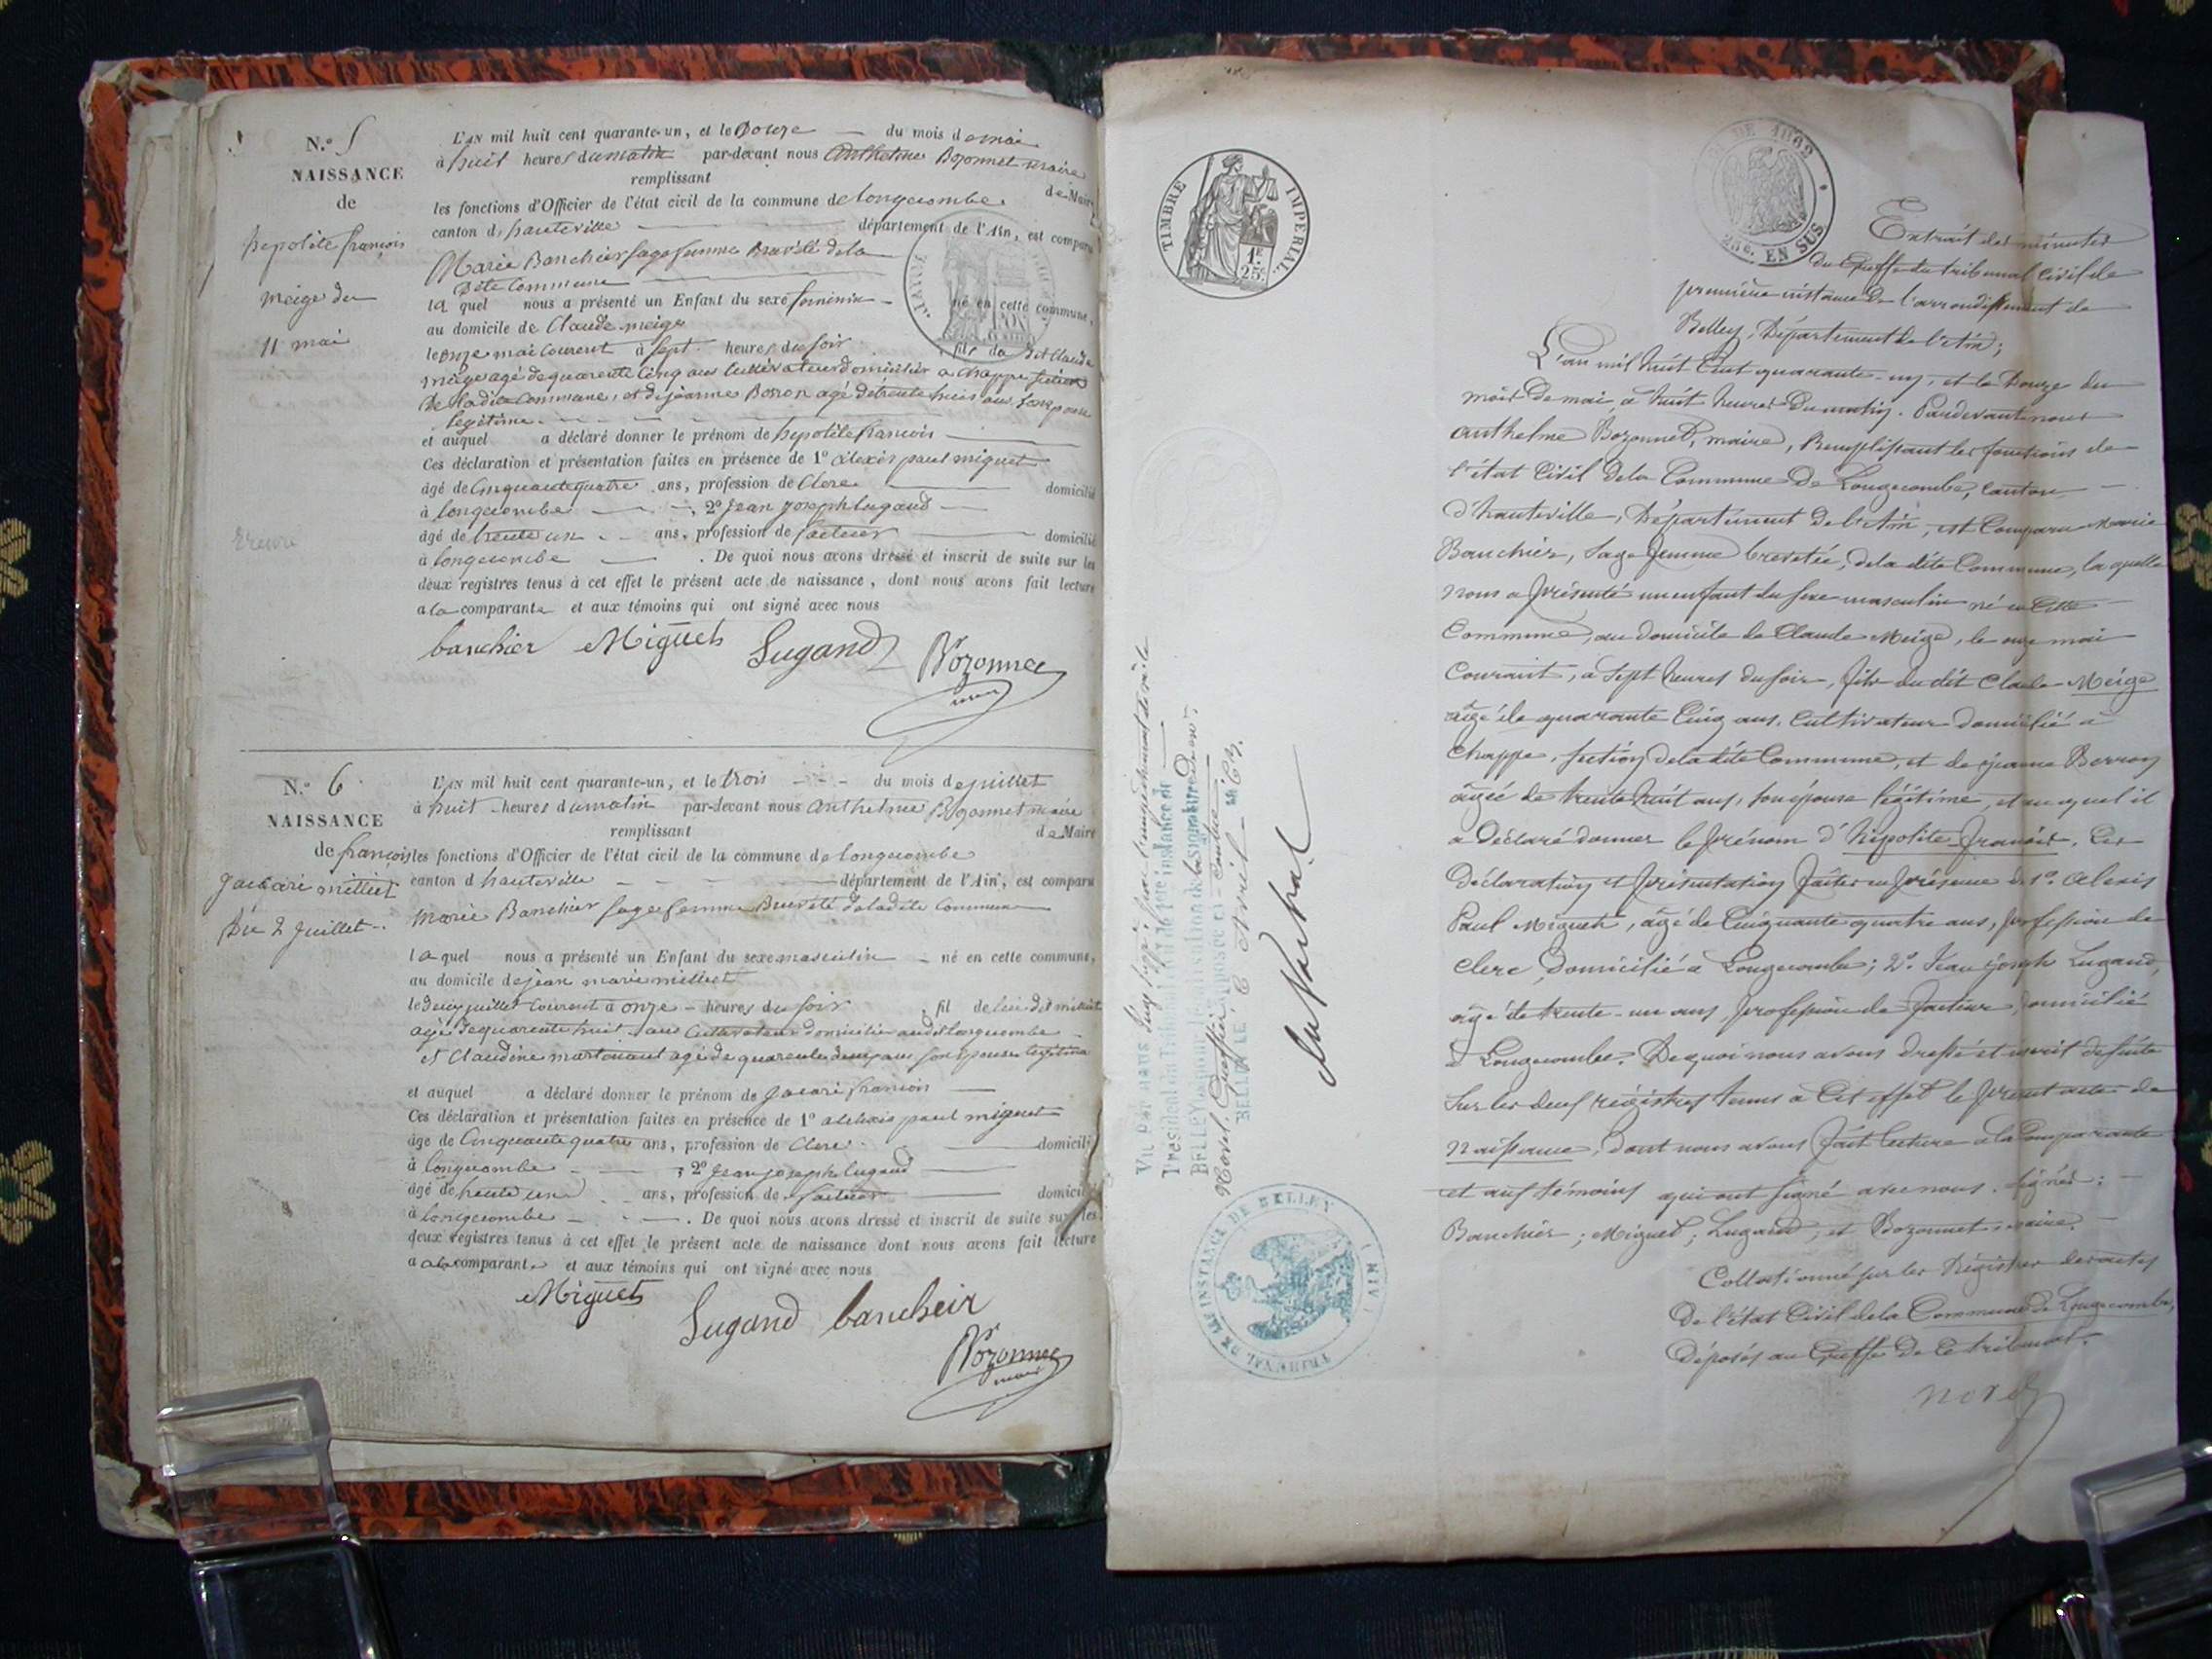 N.° 5
NAISSANCE
de
hepolite françois
meige du
11 mai
Erreure
L'AN mil huit cent quarante-un, et le Douze du mois de mai
à huit heures du matin par-devant nous Anthelme Bozonnet maire
remplissant de Maire
les fonctions d'Officier de l'état civil de la commune de longecombe
canton d'hauteville département de l'Ain, est comparu
Marie Banchier sage femme Brevété de la
Dite Commune
la quel nous a présenté un Enfant du sexe feminin né en cette commune,
au domicile de Claude meige
le onze mai Courent à sept heures du soir fils de dit Claude
meige agé de quarente Cinq ans Cultivateur domicilier a chappe section
De la dite Commune, et de jeanne Borron agé de trente huit ans son epouse
legitime
et auquel a déclaré donner le prénom de hepolite francois
Ces déclaration et présentation faites en présence de 1° alexis paul miguet
âgé de Cinquante quatre ans, profession de Clerc domicilié
à longecombe , 2° Jean Joseph lugand
âgé de trente un ans, profession de facteur domicilié
à longecombe . De quoi nous avons dressé et inscrit de suite sur les
deux registres tenus à cet effet le présent acte de naissance, dont nous avons fait lecture
a la comparante et aux témoins qui ont signé avec nous
banchier Miguet Lugand Bozonnet
maire
N.° 6
NAISSANCE
de françois
Jacari milliet
Du 2 Juillet
L'AN mil huit cent quarante-un, et le trois du mois de juillet
à huit heures du matin par-devant nous Anthelme Bozonnet maire
remplissant de Maire
les fonctions d'Officier de l'état civil de la commune de longecombe
canton d'hauteville département de l'Ain, est comparu
Marie Banchier sage femme Brevété de la dite Commune
la quel nous a présenté un Enfant du sexe masculin né en cette commune,
au domicile de jean marie milliet
le deux juillet Courent à onze heures du soir fil de lui dit milliet
agé de quarente huit ans Cultivateur domicilier audit longecombe
et Claudine martinant agé de quarente deux ans son epouse legitime
et auquel a déclaré donner le prénom de Jacari francois
Ces déclaration et présentation faites en présence de 1° alexis paul miguet
âgé de Cinquante quatre ans, profession de Clerc domicilié
à longecombe , 2° Jean joseph lugand
âgé de trente un ans, profession de facteur domicilié
à longecombe . De quoi nous avons dressé et inscrit de suite sur les
deux registres tenus à cet effet le présent acte de naissance dont nous avons fait lecture
a la comparante et aux témoins qui ont signé avec nous
Miguet Lugand bancheir
Bozonnet
maire
TIMBRE IMPERIAL
1F
25c.
DE 1862
25c. EN SUS
Extrait des minutes
du Greffe du tribunal Civil de
première instance de l'arrondissement de
Belley, Département de l'Ain;
L'an mil huit Cent quarante-un, et le Douze du
mois de mai à huit heures du matin. Pardevant nous
Anthelme Bozonnet, maire, Remplissant les fonctions de
l'état Civil de la Commune de Longecombe, canton
d'hauteville, Département de l'Ain, est Comparu Marie
Banchier, Sage femme brevetée, de la dite Commune, la quelle
nous a présenté un enfant du sexe masculin né en Cette
Commune, au domicile de Claude Meige, le onze mai
Courant, à Sept heures du soir, fils du dit Claude Meige
âgé de quarante Cinq ans, Cultivateur domicilié à
Chappe, section de la dite Commune, et de jeanne Berron
âgée de trente huit ans, son épouse légitime, et auquel il
a Déclaré donner le prénom d'hipolite-françois. Ces
Déclaration et présentation faites en présence de 1°. Alexis
Paul Miguet, âgé de Cinquante quatre ans, profession de
clerc, Domicilié à Longecombe; 2°. Jean joseph Lugand,
âgé de trente-un ans, profession de facteur, domicilié
à Longecombe. De quoi nous avons dressé et inscrit de suite
Sur les deux régistres tenus à Cet effet le présent acte de
naissance, Dont nous avons fait lecture à la Comparante
et aux témoins qui ont signé avec nous. Signés:
Banchier; Miguet; Lugand, et Bozonnet maire.
Collationné sur les Régistres des actes
de l'état Civil de la Commune de Longecombe,
Déposés au Greffe de Ce tribunal.
Morel
Vu par nous
Président du Tribunal civil de 1ère instance de
BELLEY pour légalisation de la Signature de M.
Morel, Greffier apposée ci-contre
BELLEY LE 6 Avril 1863.
TRIBUNAL DE 1ERE INSTANCE DE BELLEY (AIN)